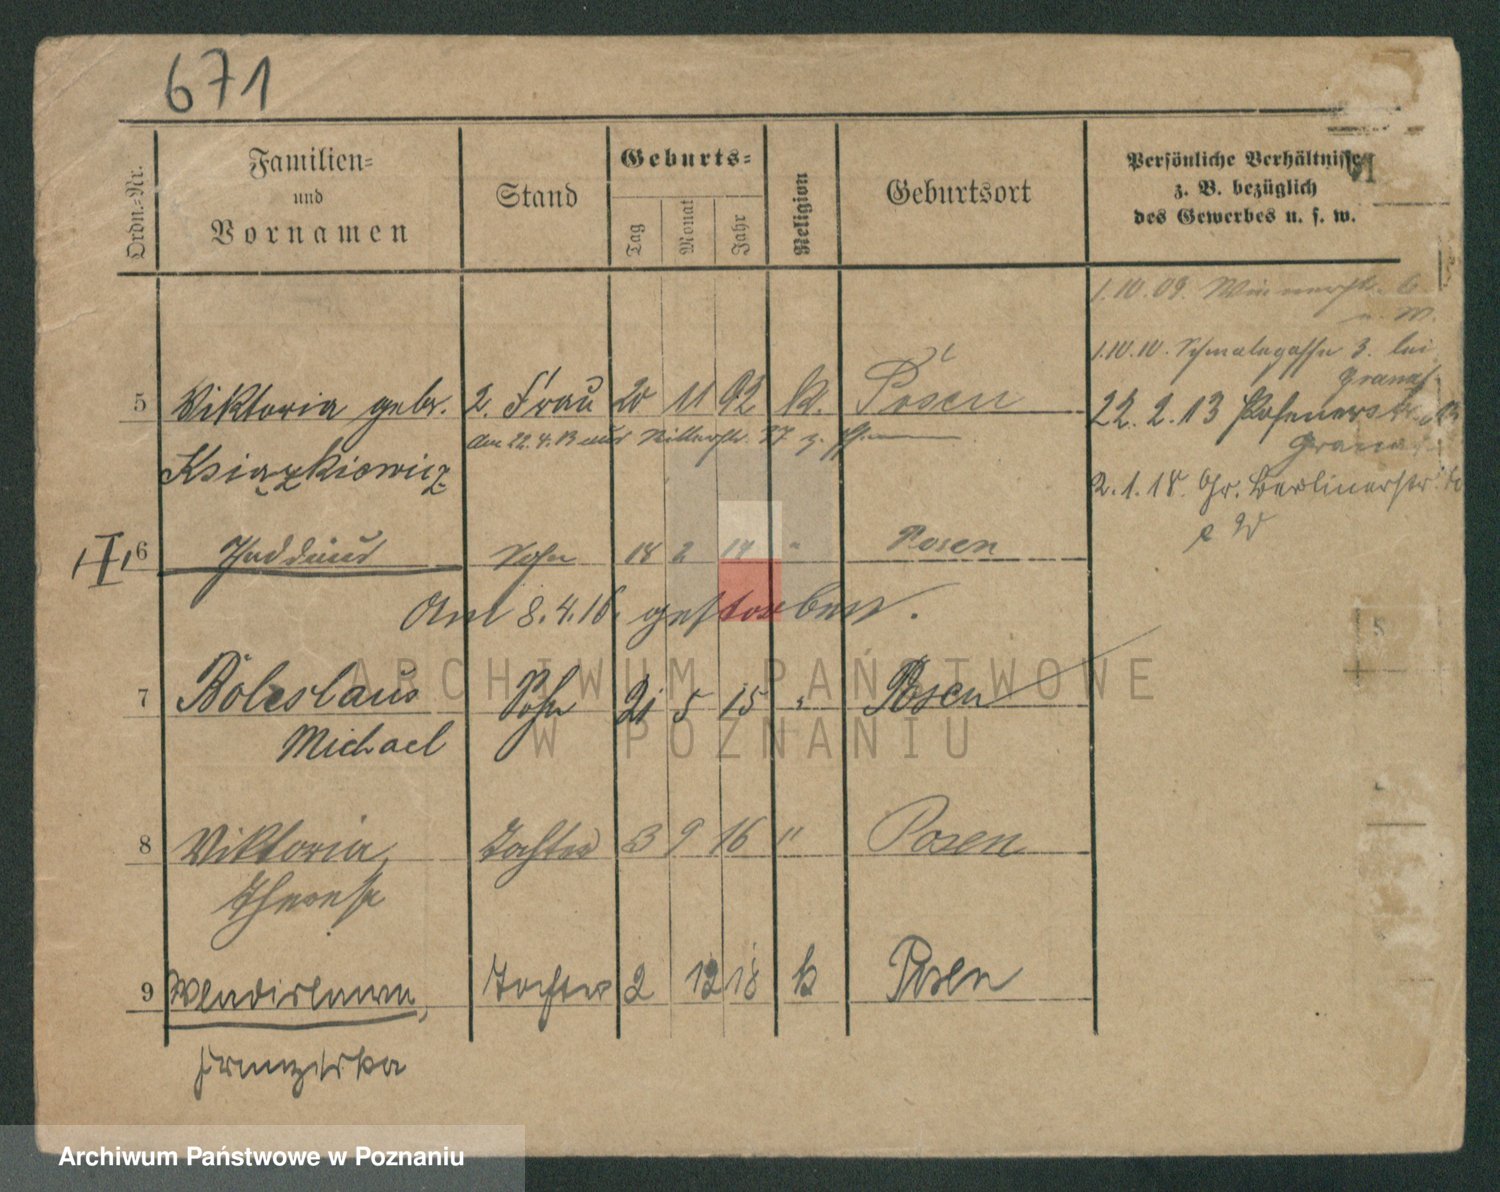 671
Ordn.-Nr.
Familien-
und
Vornamen
Stand
Geburts-
Tag
Monat
Jahr
Religion
Geburtsort
Persönliche Verhältnisse
z. B. bezüglich
des Gewerbes u. s. w.
1.10.09.
1.10.10. Schmalegasse 3. bei
5 Viktoria geb. 2. Frau 20 11 92 k. Posen
22.2.13 Posenerstr.
Am 22.4.13 aus Ritterstr. 37
Książkiewicz
2.1.18. Gr. Berlinerstr.
6 Thaddäus Sohn 18 2 14 " Posen
Am 8.4.16. gestorben.
7 Boleslaus Sohn 21 5 15 " Posen
Michael
8 Viktoria, Tochter 3 9 16 " Posen
Therese
9 Wladislawa, Tochter 2 12 18 k Posen
Franziska
ARCHIWUM PAŃSTWOWE
W POZNANIU
Archiwum Państwowe w Poznaniu